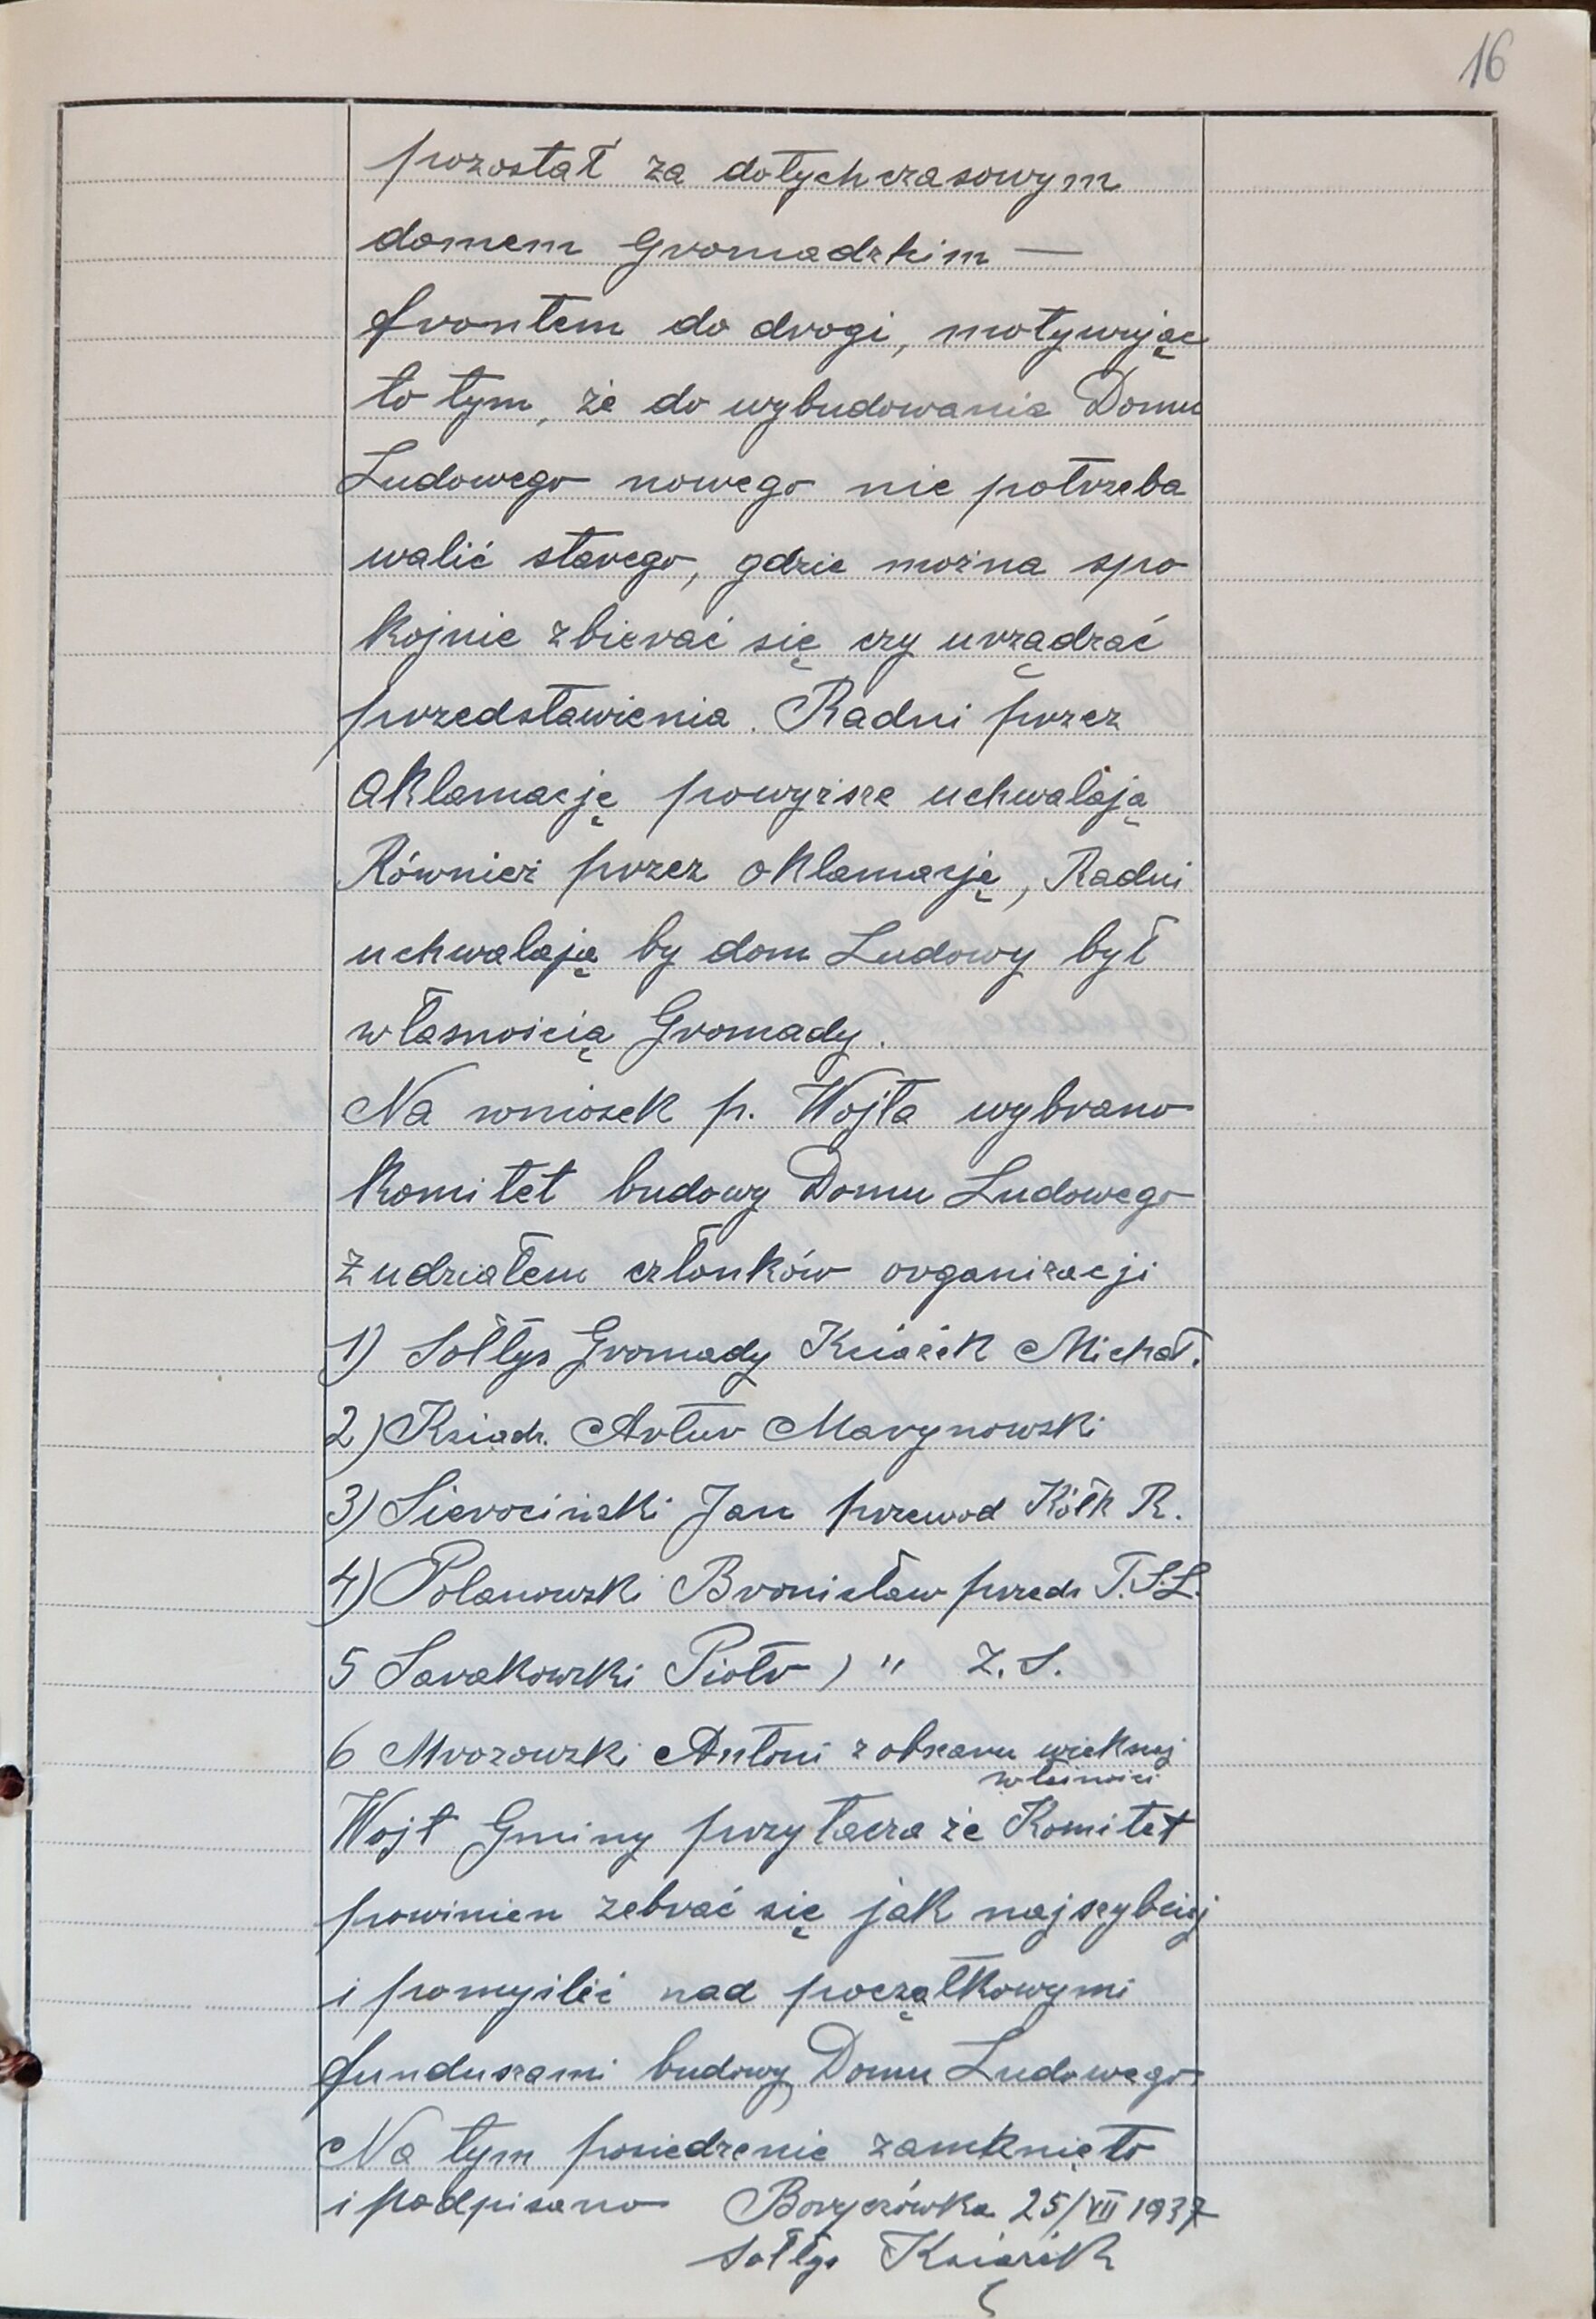 16
pozostał za dotychczasowym
domem Gromadzkim —
frontem do drogi, motywując
to tym, że do wybudowania Domu
Ludowego nowego nie potrzeba
walić starego, gdzie można spo
kojnie zbierać się czy urządzać
przedstawienia. Radni przez
aklamację powyższe uchwalają
Również przez oklamację, Radni
uchwalają by dom Ludowy był
własnością Gromady.
Na wniosek p. Wojta wybrano
Komitet budowy Domu Ludowego
z udziałem członków organizacji
1) Sołtys Gromady Książek Michał.
2) Ksiądz. Artur Marynowski
3) Sierociński Jan przewod Kółk R.
4) Polanowski Bronisław przeds T.S.L.
5 Sarakowski Piotr ) " Z.S.
6 Mrozowski Antoni z obszaru większej
własności
Wojt Gminy przytacza że Komitet
powinien zebrać się jak najszybciej
i pomyśleć nad początkowymi
funduszami budowy Domu Ludowego
Na tym posiedzenie zamknięto
i podpisano Boryczówka 25/VII 1937
Sołtys Książek